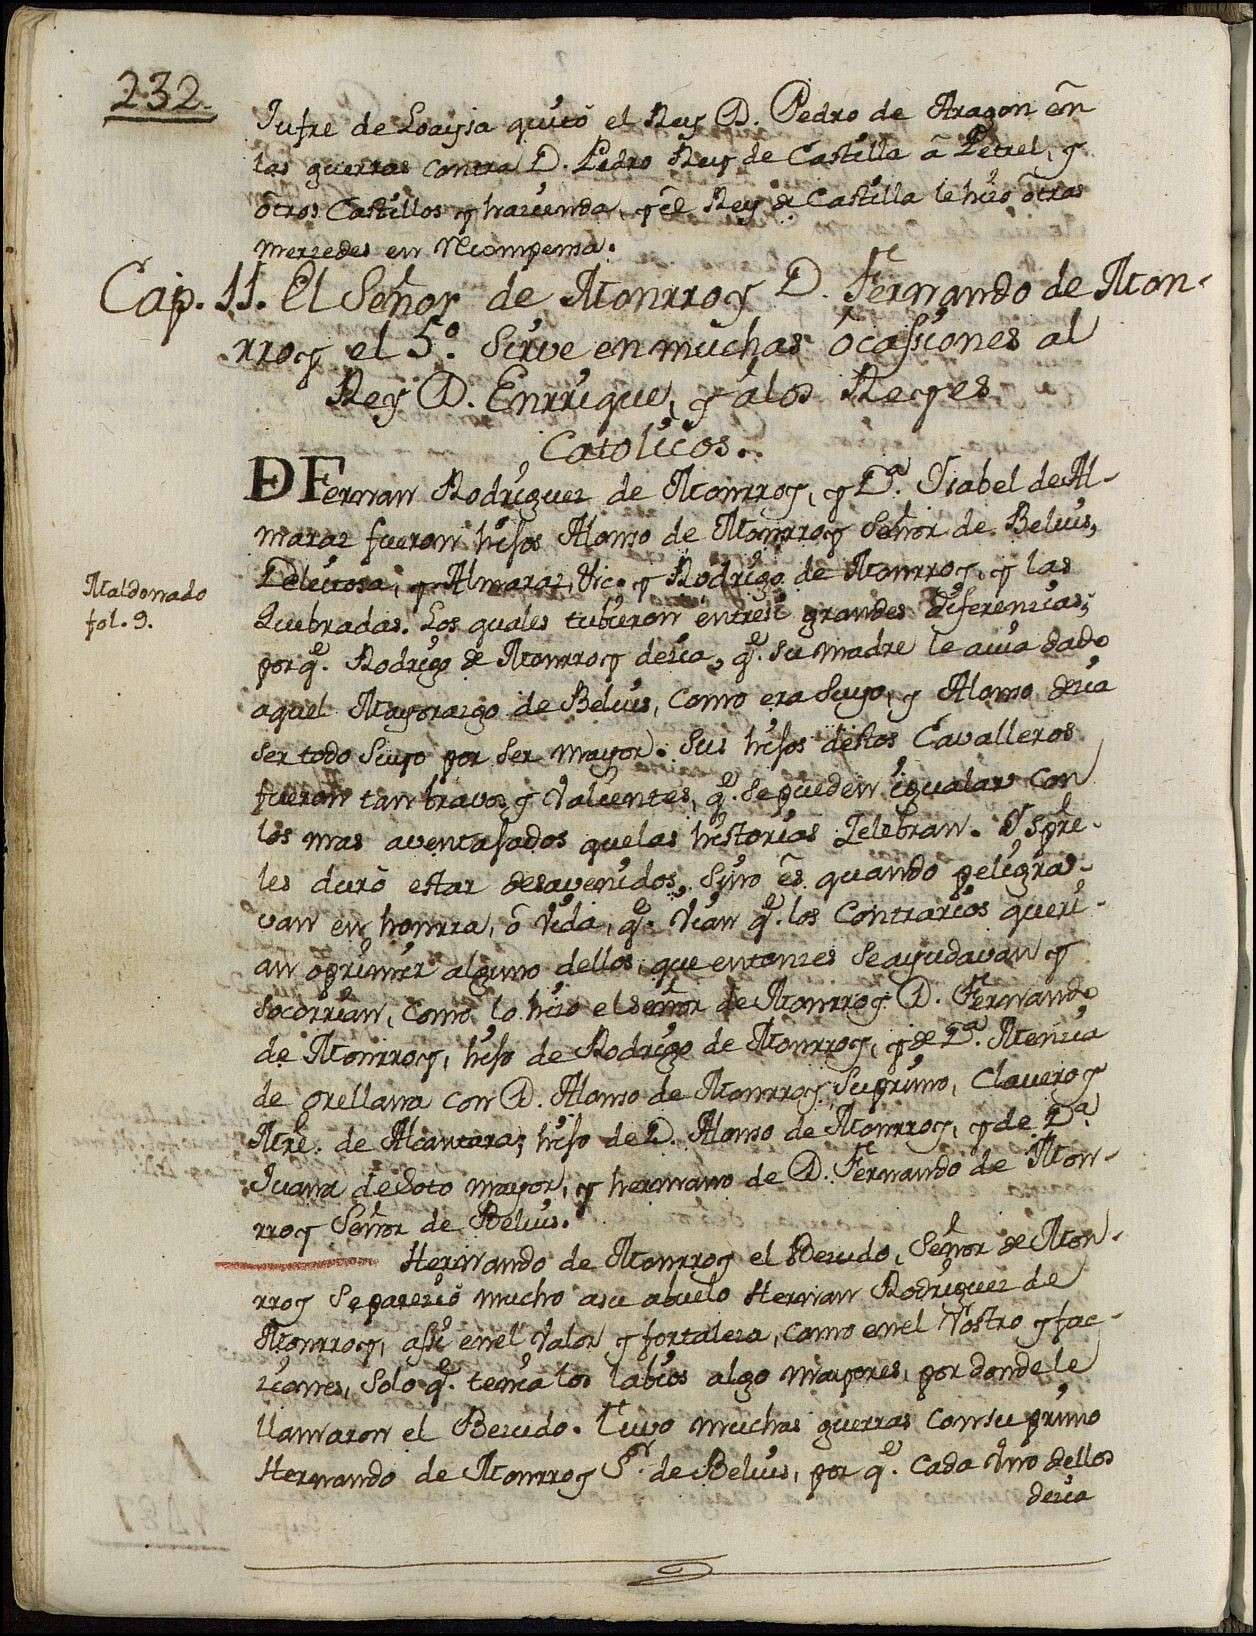 232.
Jufre de Loaysa quitó el Rey D. Pedro de Aragon én
las guerras contra D. Pedro Rey de Castilla á Petrel, y
ótros Castillos y hazienda, y él Rey de Castilla le hizo ótras
merzedes en recompensa.
Cap. 11. El Señor de Monrroy D. Fernando de Mon-
rroy el 5º. Sirve en muchas ócasiones al
Rey D. Enrrique, y á los Reyes
Catolicos.
DE Fernan Rodriguez de Monrroy, y Dª. Ysabel de Al-
maraz fueron hijos Alonso de Monrroy Señor de Belvis,
Deleitosa, y Almaraz, &c. y Rodrigo de Monrroy, y las
Quebradas. Los quales tubieron entre si grandes diferenzias,
Maldonado
fol. 9.
por q̃. Rodrigo de Monrroy dezia, q̃. su madre le avia dado
aquel Mayorazgo de Belvis, como era suyo, y Alonso dezia
ser todo suyo por ser mayor. Sus hijos destos Cavalleros
fueron tan bravos, y valientes, q̃. se pueden igualar con
los mas aventajados que las historias zelebran. Y spre.
les duró estar desavenidos, sino és quando peligra-
van en honrra, ó vida, q̃. vian q̃. los contrarios queri-
an oprimir alguno dellos, que entonzes se ayudavan y
socorrian, como lo hizo el señor de Monrroy D. Fernando
de Monrroy, hijo de Rodrigo de Monrroy, y de Dª. Menzia
de Orellana con D. Alonso de Monrroy su primo, Clavero y
Mre. de Alcantara, hijo de D. Alonso de Monrroy, y de Dª.
Juana de Soto mayor, y hermano de D. Fernando de Mon-
rroy Señor de Belvis.
Hernando de Monrroy el Bezudo, Señor de Mon-
rroy se parezió mucho a su abuelo Hernan Rodriguez de
Monrroy, assi en el valor y fortaleza, como en el rostro y fac-
ziones, solo q̃. tenia los labios algo mayores, por donde le
llamaron el Bezudo. Tuvo muchas guerras con su primo
Hernando de Monrroy Sor. de Belvis, por q̃. cada uno dellos
dezia